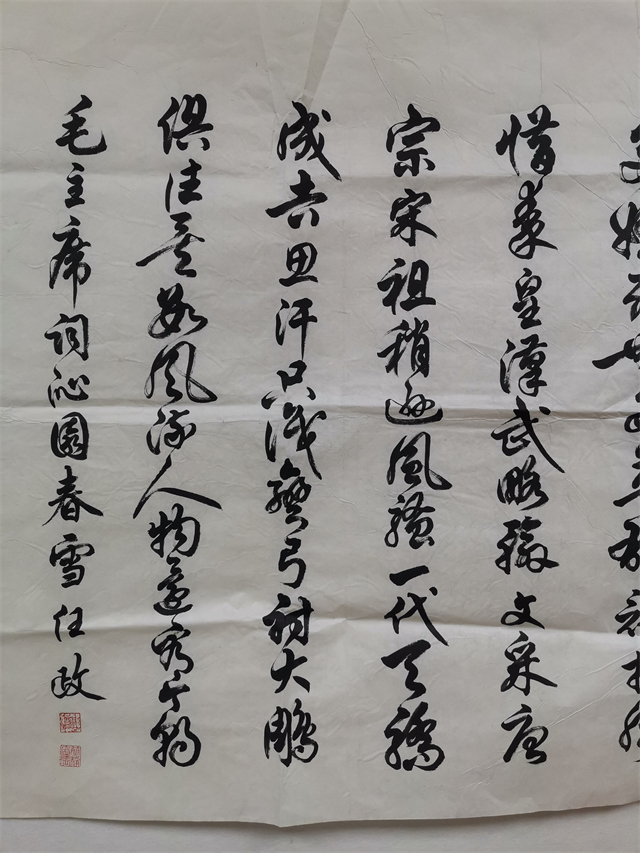 惜秦皇漢武略輸文采唐
宗宋祖稍遜風騷一代天驕
成吉思汗只識彎弓射大鵰
俱往矣數風流人物還看今朝
毛主席詞沁園春雪任政